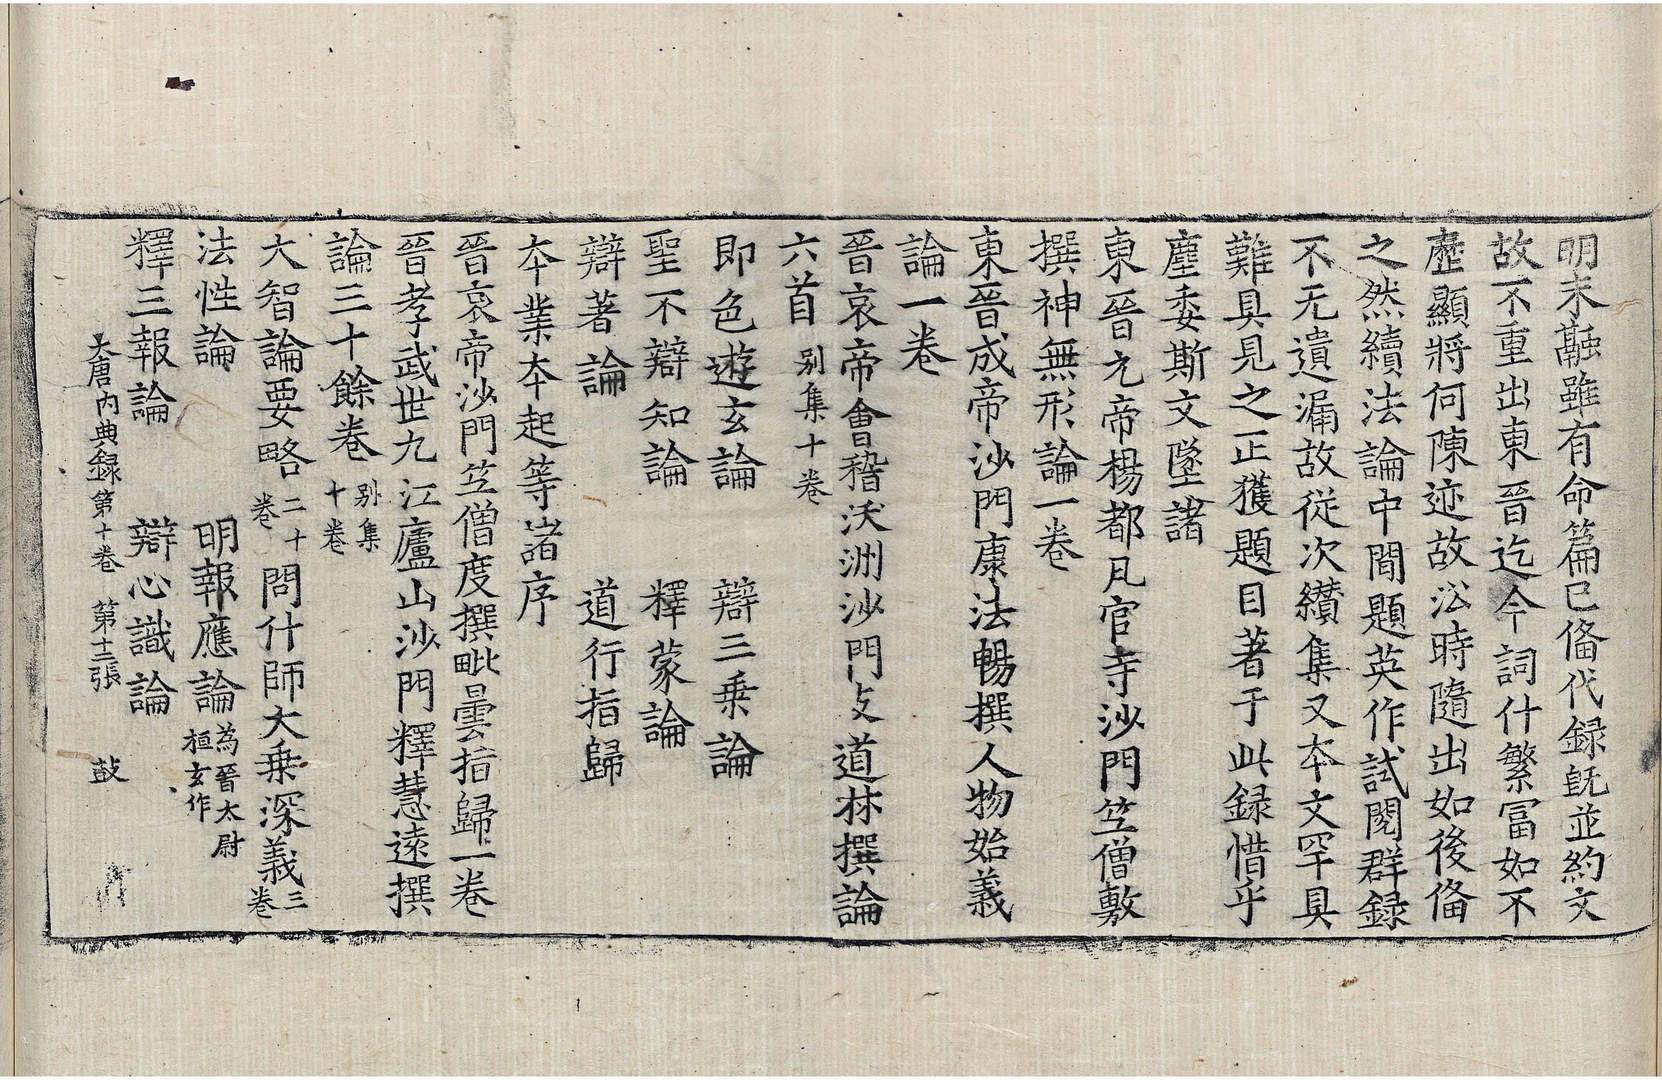 明末融雖有命篇已俻代録旣並約文
故不重出東晉迄今詞什繁冨如不
歷顯將何陳迹故㳂時隨出如後俻
之然續法論中間題英作試閱群録
不无遺漏故從次纘集又本文罕具
難具見之正獲題目著于此録惜乎
塵委斯文墜諸
東晉元帝楊都瓦官寺沙門竺僧敷
撰神無形論一卷
東晉成帝沙門康法暢撰人物始義
論一卷
晉哀帝會稽沃洲沙門支道林撰論
六首 别集十卷
即色遊玄論 辯三乗論
聖不辯知論 釋蒙論
辯著論 道行指歸
本業本起等諸序
晉哀帝沙門竺僧度撰毗曇指歸一卷
晉孝武世九江廬山沙門釋慧遠撰
論三十餘卷 别集十卷
大智論要略 二十卷 問什師大乗深義 三卷
法性論 明報應論 為晉太尉桓玄作
釋三報論 辯心識論
大唐内典録第十卷 第十二張 鼓